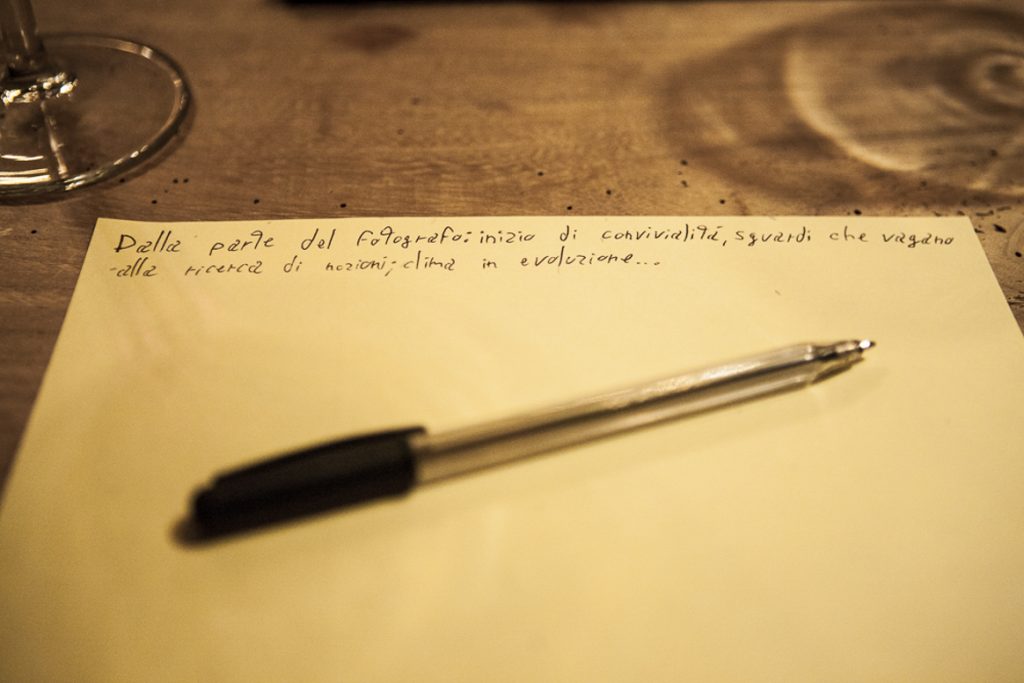 Dalla parte del fotografo: inizio di convivialità, sguardi che vagano
alla ricerca di nozioni; clima in evoluzione...